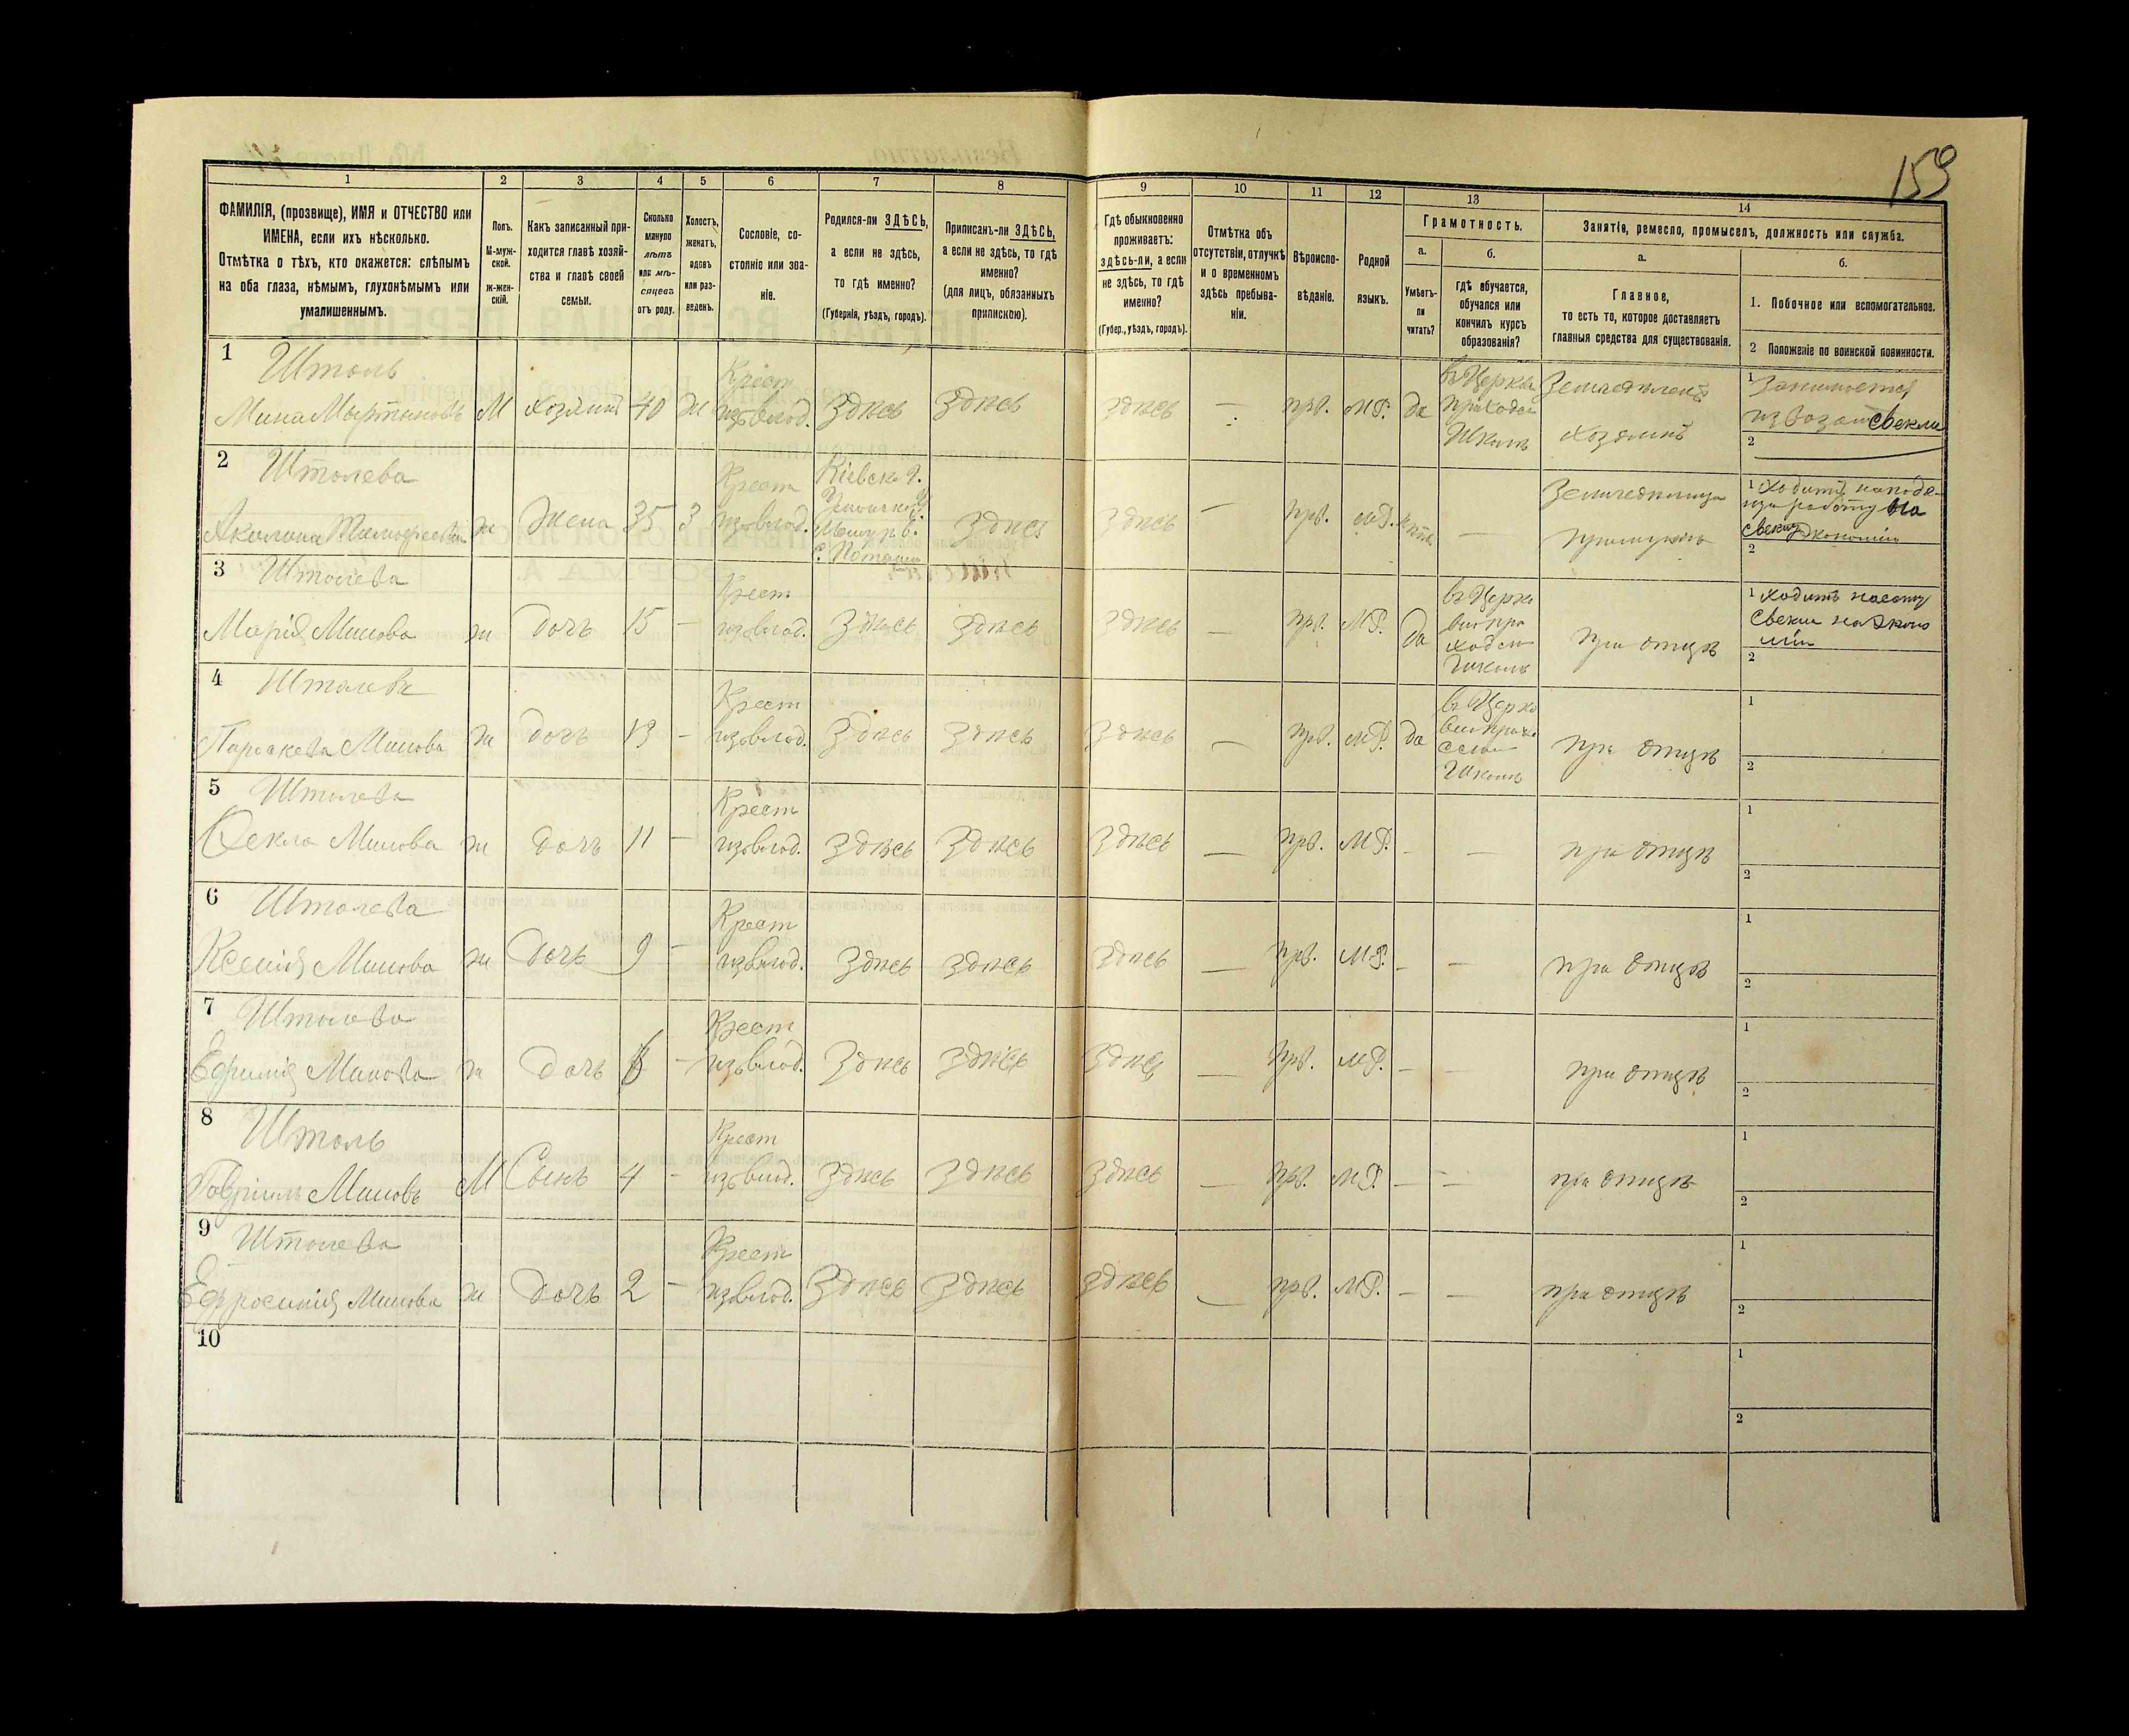 159
1
2
3
4
5
6
7
8
9
10
11
12
13
14
ФАМИЛІЯ, (прозвище), ИМЯ и ОТЧЕСТВО или
ИМЕНА, если ихъ нѣсколько.
Отмѣтка о тѣхъ, кто окажется: слѣпымъ
на оба глаза, нѣмымъ, глухонѣмымъ или
умалишеннымъ.
Полъ.
М-муж-
ской.
Ж-жен-
скій.
Какъ записанный при-
ходится главѣ хозяй-
ства и главѣ своей
семьи.
Сколько
минуло
лѣтъ
или мѣ-
сяцевъ
отъ роду.
Холостъ,
женатъ,
вдовъ
или раз-
веденъ.
Сословіе, со-
стояніе или зва-
ніе.
Родился-ли ЗДѢСЬ,
а если не здѣсь,
то гдѣ именно?
(Губернія, уѣздъ, городъ).
Приписанъ-ли ЗДѢСЬ,
а если не здѣсь, то гдѣ
именно?
(для лицъ, обязанныхъ
припискою).
Гдѣ обыкновенно
проживаетъ:
здѣсь-ли, а если
не здѣсь, то гдѣ
именно?
(Губер., уѣздъ, городъ).
Отмѣтка объ
отсутствіи, отлучкѣ
и о временномъ
здѣсь пребыва-
ніи.
Вѣроиспо-
вѣданіе.
Родной
языкъ.
Грамотность.
а.
Умѣетъ-
ли
читать?
б.
гдѣ обучается,
обучался или
кончилъ курсъ
образованія?
Занятіе, ремесло, промыселъ, должность или служба.
а.
Главное,
то есть то, которое доставляетъ
главныя средства для существованія.
б.
1. Побочное или вспомогательное.
2 Положеніе по воинской повинности.
1
Штоль
Мина Мартиновъ М хозяинъ 40 ж Крест изъ влад. Здѣсь Здѣсь здѣсь — прв. М.Р. да
въ Церкв
приходск
Школѣ
хозяинъ
1 Занимается
извозом свекли
2
2
Штолева
Акилина ж Жена 35 З Крест изъ влад.
Кіевск. г.
Здѣсь Здѣсь — прв. М.Р. —
1 Ходитъ
работу на
2
3
Штолева
Марія Минова ж дочь 15 — Крест изъ влад. Здѣсь Здѣсь Здѣсь — прв. М.Р. да
въ Церко
вно при
ходск
Школѣ
при отцѣ
1 ходитъ
свекли на эконо
міи
2
4
Штолева
Параскева Минова ж дочь 13 — Крест изъ влад. Здѣсь Здѣсь Здѣсь — прв. М.Р. да
въ Церко
Школѣ
при отцѣ
1
2
5
Штолева
Фекла Минова ж дочь 11 — Крест изъ влад. Здѣсь Здѣсь Здѣсь — прв. М.Р. — — при отцѣ
1
2
6
Штолева
Ксенія Минова ж дочь 9 — Крест изъ влад. Здѣсь Здѣсь Здѣсь — прв. М.Р. — — при отцѣ
1
2
7
Штолева
Ефимія Минова ж дочь — Крест изъ влад. Здѣсь Здѣсь Здѣсь — прв. М.Р. — — при отцѣ
1
2
8
Штоль
Гавріилъ Миновъ М Сынъ 4 — Крест изъ влад. Здѣсь Здѣсь Здѣсь — прв. М.Р. — — при отцѣ
1
2
9
Штолева
Ефросинія Минова ж дочь 2 — Крест изъ влад. Здѣсь Здѣсь здѣсь — прв. М.Р. — — при отцѣ
1
2
10
1
2